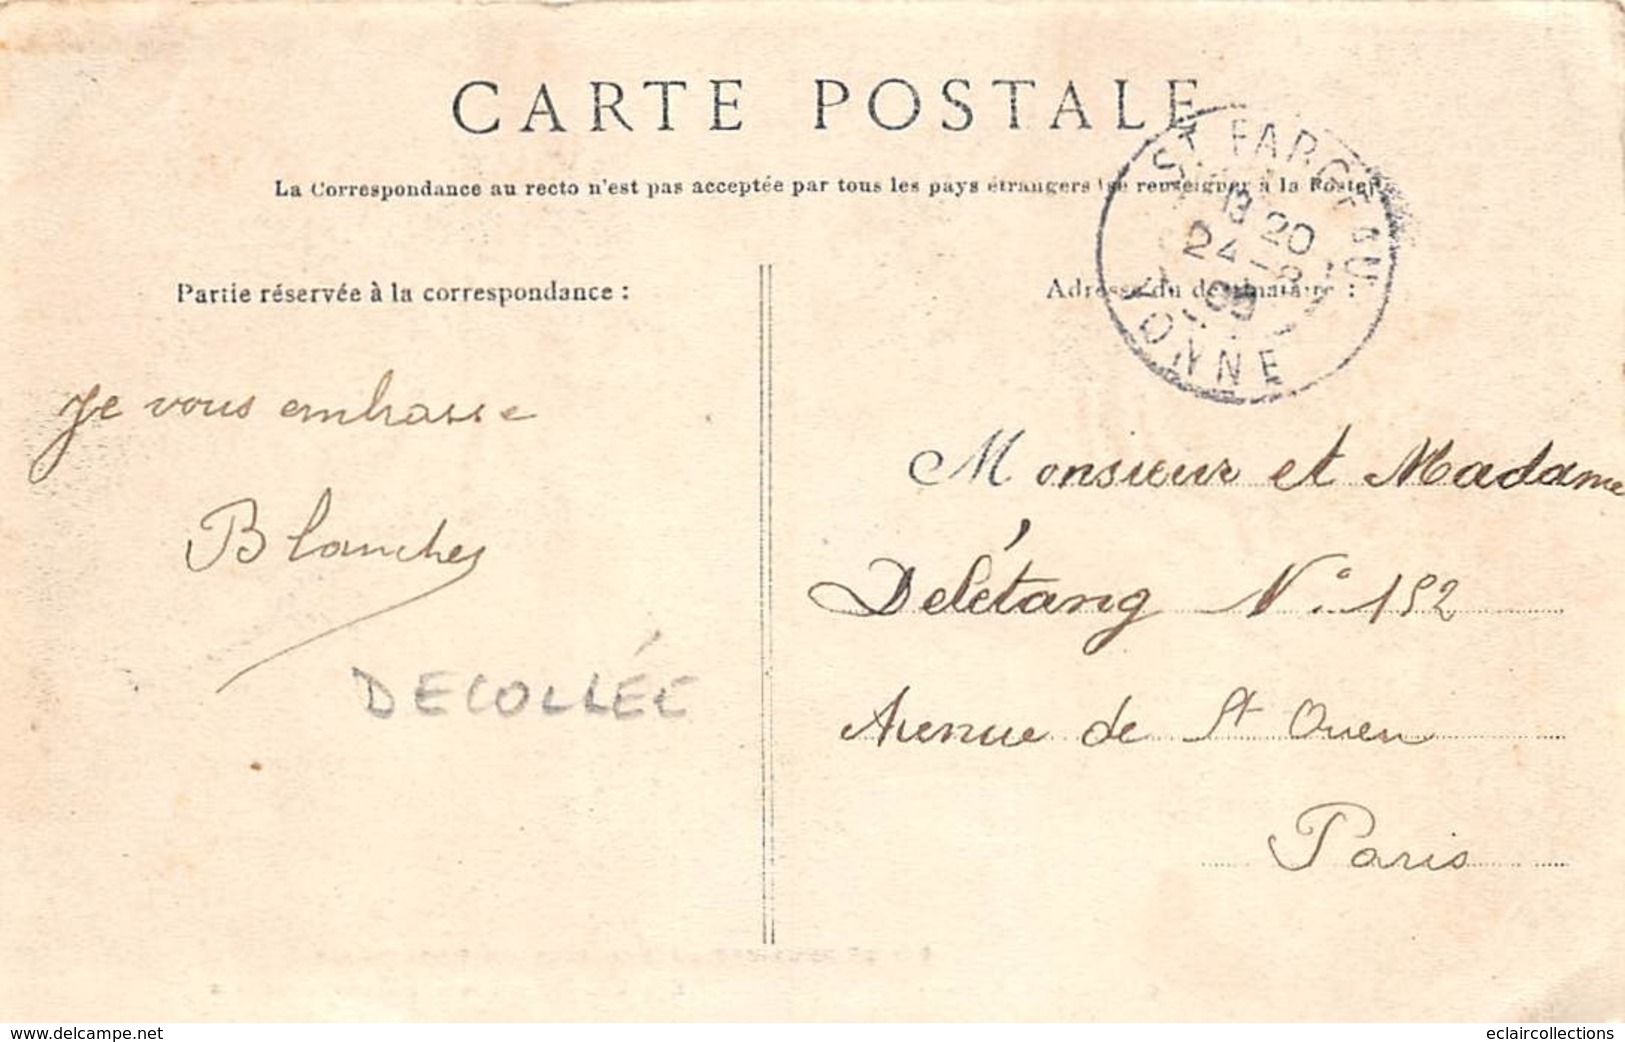 CARTE POSTALE
La Correspondance au recto n'est pas acceptée par tous les pays étrangers (se renseigner à la Poste)
ST FARGEAU
13 20
24-8
09
YONNE
Partie réservée à la correspondance :
Adresse du destinataire :
Je vous embrasse
Blanche
DECOLLÉE
Monsieur et Madame
Delétang N° 152
Avenue de St Ouen
Paris
www.delcampe.net
eclaircollections